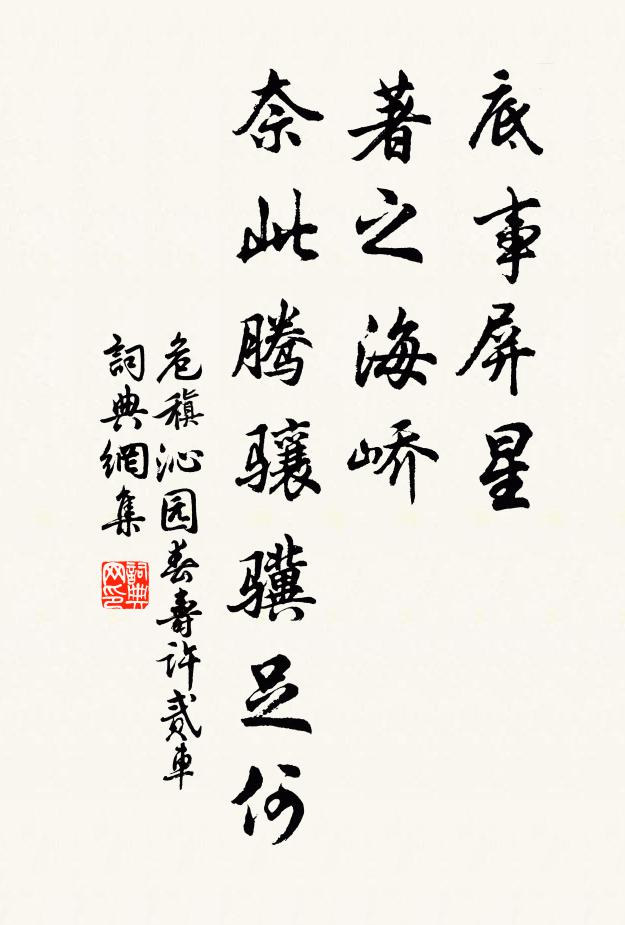 底事屏星
著之海峤
奈此腾骧骥足何
危稹沁园春寿许贰車
詞典網集
詞典网印